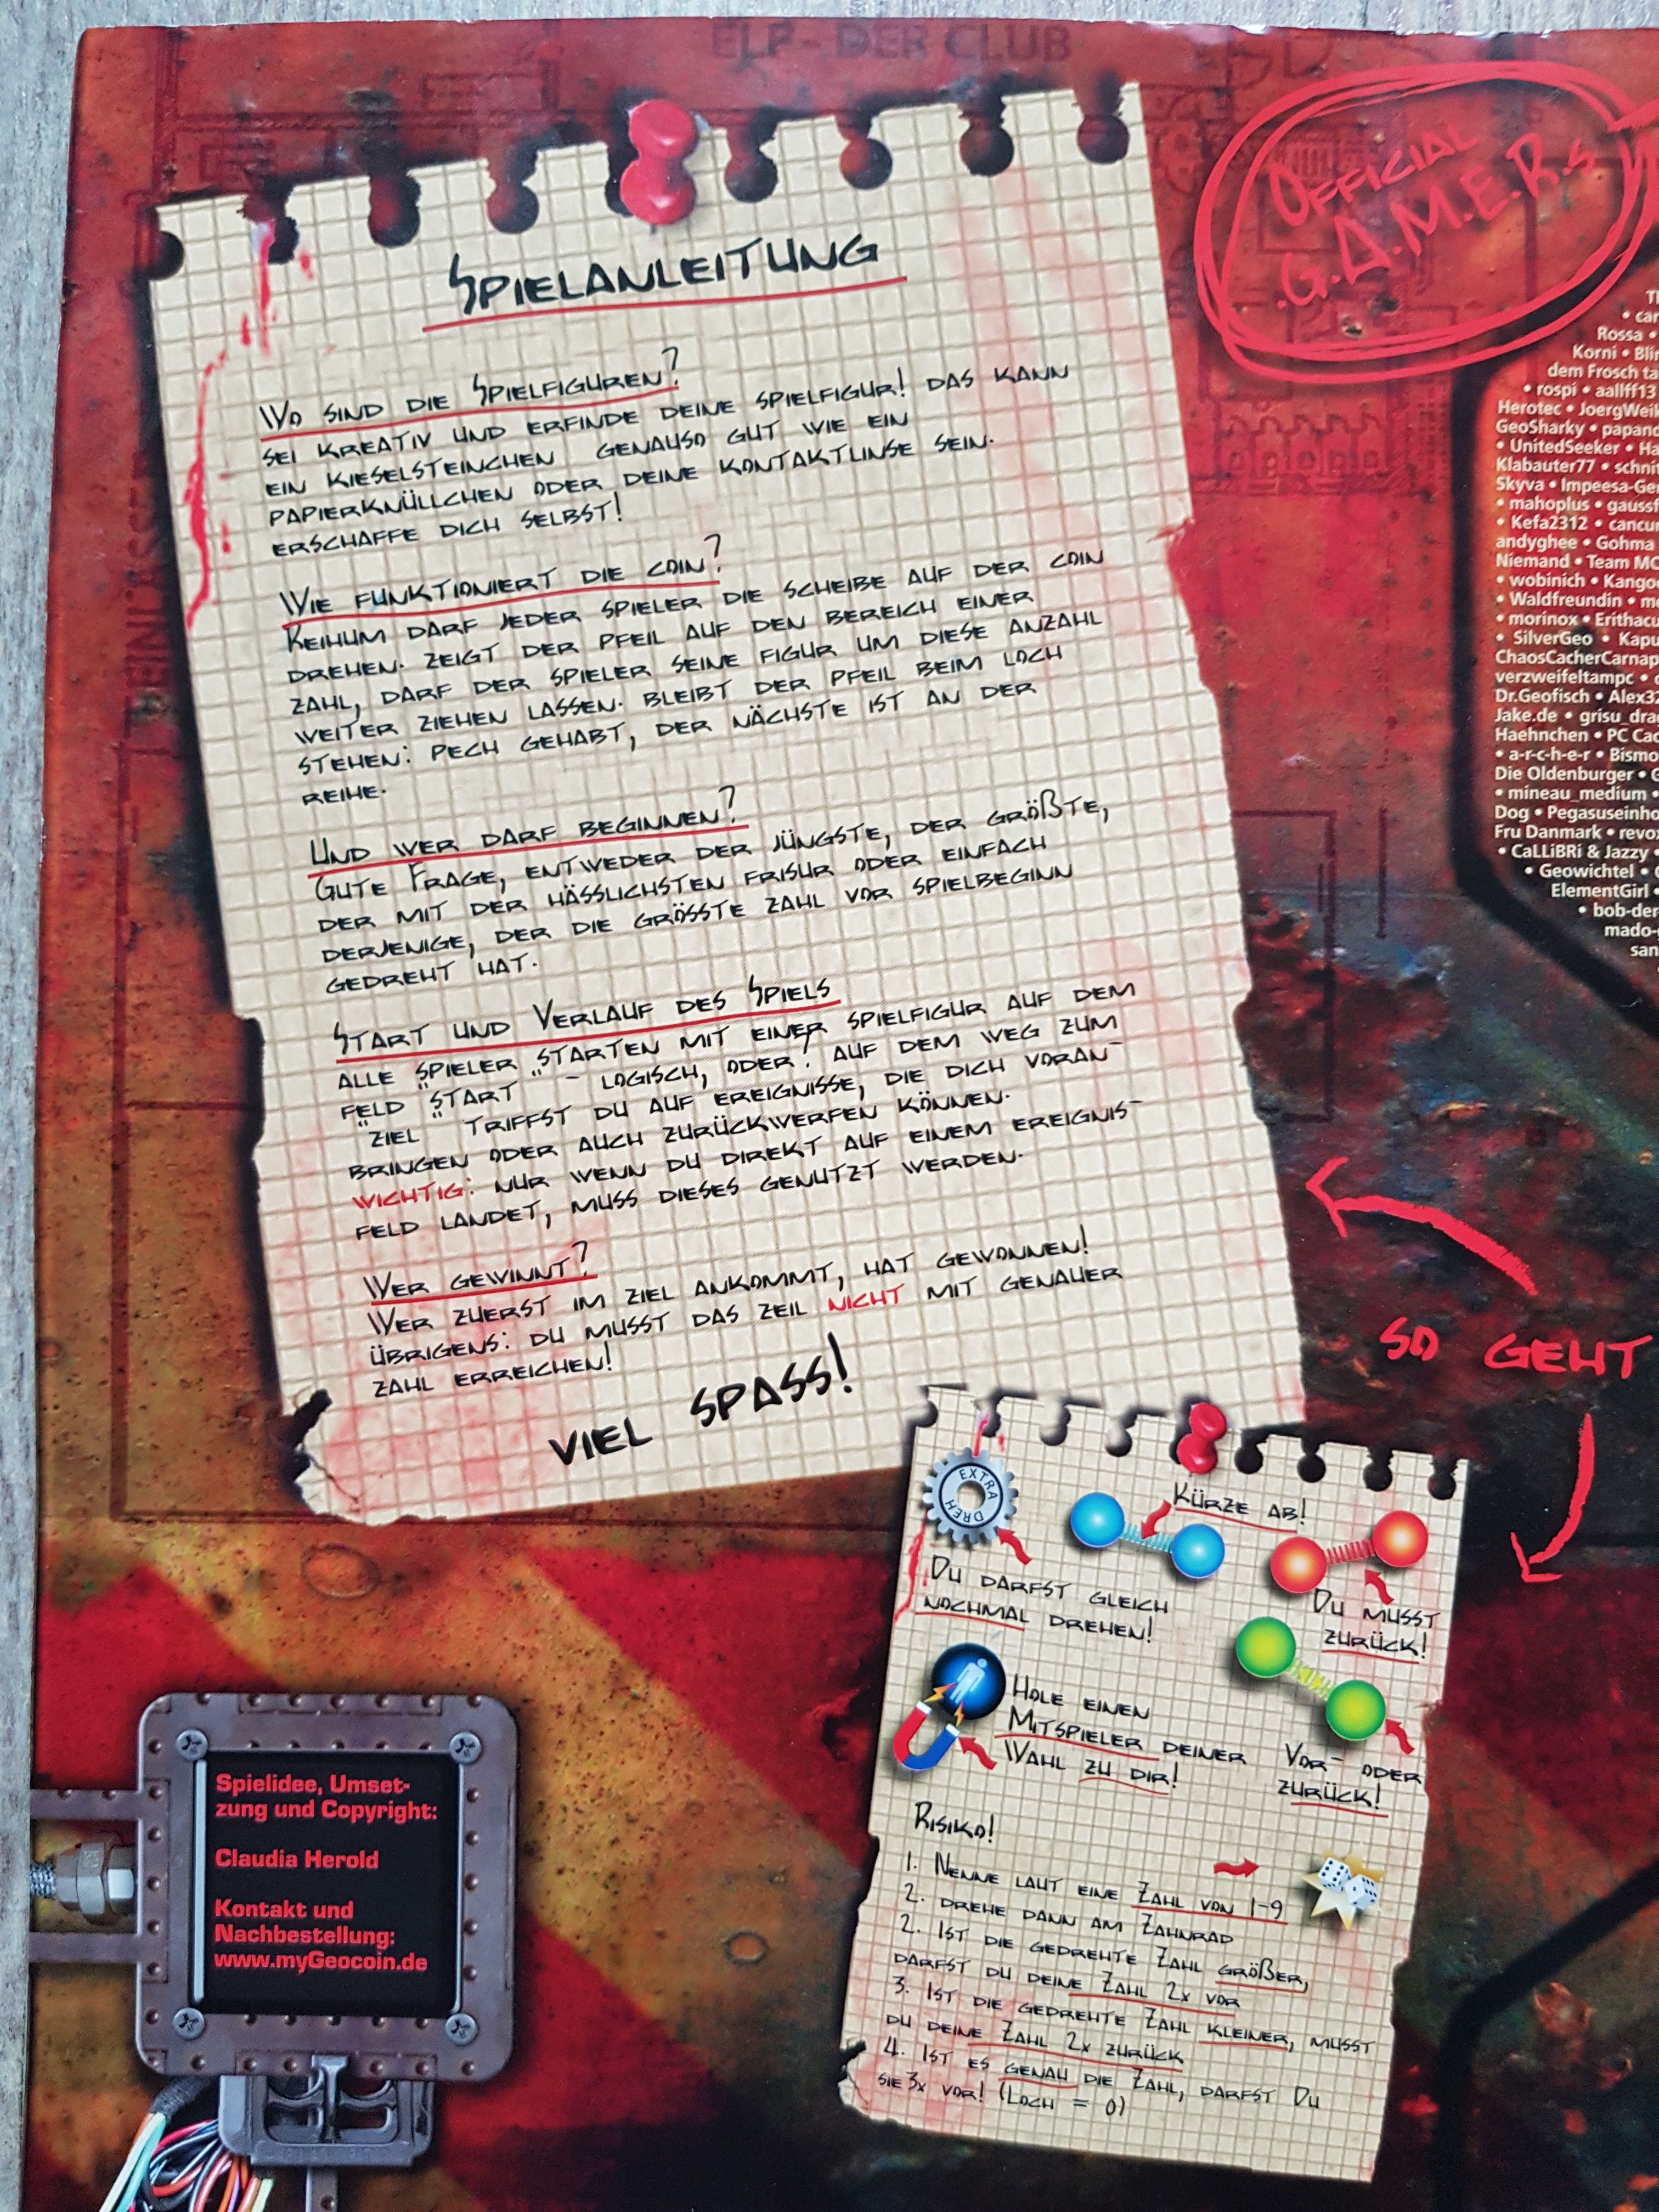 ELP - DER CLUB
OFFICIAL
.G.A.M.E.R.s
SPIELANLEITUNG
WO SIND DIE SPIELFIGUREN?
SEI KREATIV UND ERFINDE DEINE SPIELFIGUR! DAS KANN
EIN KIESELSTEINCHEN GENAUSO GUT WIE EIN
PAPIERKNÜLLCHEN ODER DEINE KONTAKTLINSE SEIN.
ERSCHAFFE DICH SELBST!
WIE FUNKTIONIERT DIE COIN?
REIHUM DARF JEDER SPIELER DIE SCHEIBE AUF DER COIN
DREHEN. ZEIGT DER PFEIL AUF DEN BEREICH EINER
ZAHL, DARF DER SPIELER SEINE FIGUR UM DIESE ANZAHL
WEITER ZIEHEN LASSEN. BLEIBT DER PFEIL BEIM LOCH
STEHEN: PECH GEHABT, DER NÄCHSTE IST AN DER
REIHE.
UND WER DARF BEGINNEN?
GUTE FRAGE, ENTWEDER DER JÜNGSTE, DER GRÖßTE,
DER MIT DER HÄSSLICHSTEN FRISUR ODER EINFACH
DERJENIGE, DER DIE GRÖSSTE ZAHL VOR SPIELBEGINN
GEDREHT HAT.
START UND VERLAUF DES SPIELS
ALLE SPIELER STARTEN MIT EINER SPIELFIGUR AUF DEM
FELD "START" - LOGISCH, ODER? AUF DEM WEG ZUM
"ZIEL" TRIFFST DU AUF EREIGNISSE, DIE DICH VORAN-
BRINGEN ODER AUCH ZURÜCKWERFEN KÖNNEN.
WICHTIG: NUR WENN DU DIREKT AUF EINEM EREIGNIS-
FELD LANDET, MUSS DIESES GENUTZT WERDEN.
WER GEWINNT?
WER ZUERST IM ZIEL ANKOMMT, HAT GEWONNEN!
ÜBRIGENS: DU MUSST DAS ZEIL NICHT MIT GENAUER
ZAHL ERREICHEN!
VIEL SPASS!
• car
Rossa •
Korni • Blin
dem Frosch ta
• rospi • aallff13
Herotec • JoergWeik
GeoSharky • papano
• UnitedSeeker • Ha
Klabauter77 • schnif
Skyva • Impeesa-Ger
• mahoplus • gaussf
• Kefa2312 • cancur
andyghee • Gohma
Niemand • Team MC
• wobinich • Kangoo
• Waldfreundin • me
• morinox • Erithacu
• SilverGeo • Kapu
ChaosCacherCarnap
verzweifeltampc •
Dr.Geofisch • Alex32
Jake.de • grisu_drag
Haehnchen • PC Cac
• a-r-c-h-e-r • Bismo
Die Oldenburger • G
• mineau_medium •
Dog • Pegasuseinho
Fru Danmark • revox
• CaLLiBRi & Jazzy •
• Geowichtel •
ElementGirl •
• bob-der-
mado-g
san
SO GEHT
EXTRA
DREH
KÜRZE AB!
DU DARFST GLEICH
NOCHMAL DREHEN!
DU MUSST
ZURÜCK!
HOLE EINEN
MITSPIELER DEINER
WAHL ZU DIR!
VOR- ODER
ZURÜCK!
RISIKO!
1. NENNE LAUT EINE ZAHL VON 1-9
2. DREHE DANN AM ZAHNRAD
2. IST DIE GEDREHTE ZAHL GRÖßER,
DARFST DU DEINE ZAHL 2x VOR
3. IST DIE GEDREHTE ZAHL KLEINER, MUSST
DU DEINE ZAHL 2x ZURÜCK
4. IST ES GENAU DIE ZAHL, DARFST DU
SIE 3x VOR! (LOCH = 0)
Spielidee, Umset-
zung und Copyright:
Claudia Herold
Kontakt und
Nachbestellung:
www.myGeocoin.de